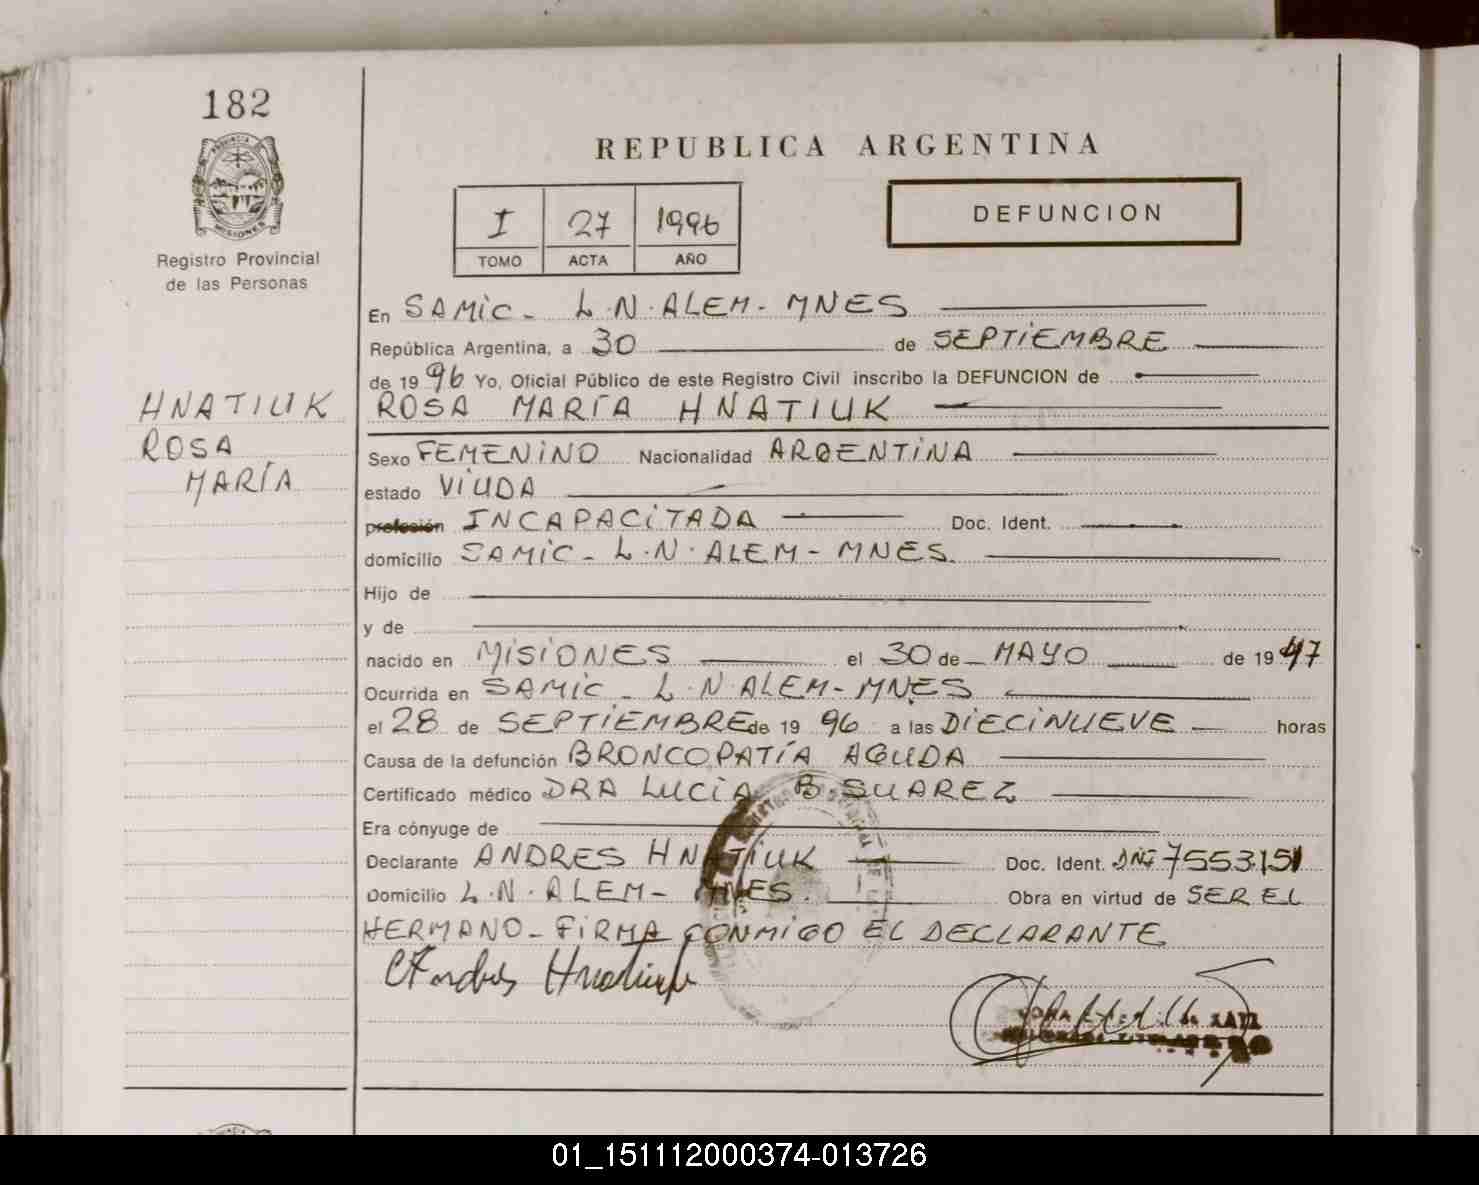 182
REPUBLICA ARGENTINA
DEFUNCION
I 27 1996
TOMO ACTA AÑO
Registro Provincial
de las Personas
En SAMIC - L.N. ALEM - MNES
República Argentina, a 30 de SEPTIEMBRE
de 1996 Yo, Oficial Público de este Registro Civil inscribo la DEFUNCION de
ROSA MARÍA HNATIUK
HNATIUK
ROSA
MARÍA
Sexo FEMENINO Nacionalidad ARGENTINA
estado VIUDA
profesión INCAPACITADA Doc. Ident.
domicilio SAMIC - L.N. ALEM - MNES.
Hijo de
y de
nacido en MISIONES el 30 de MAYO de 1947
Ocurrida en SAMIC - L.N ALEM - MNES
el 28 de SEPTIEMBRE de 1996 a las DIECINUEVE horas
Causa de la defunción BRONCOPATÍA AGUDA
Certificado médico DRA LUCIA B. SUAREZ
Era cónyuge de
Declarante ANDRES HNATIUK Doc. Ident. DNI 7553151
Domicilio L.N. ALEM - MNES. Obra en virtud de SER EL
HERMANO - FIRMA CONMIGO EL DECLARANTE
Andrés Hnatiuk
01_151112000374-013726